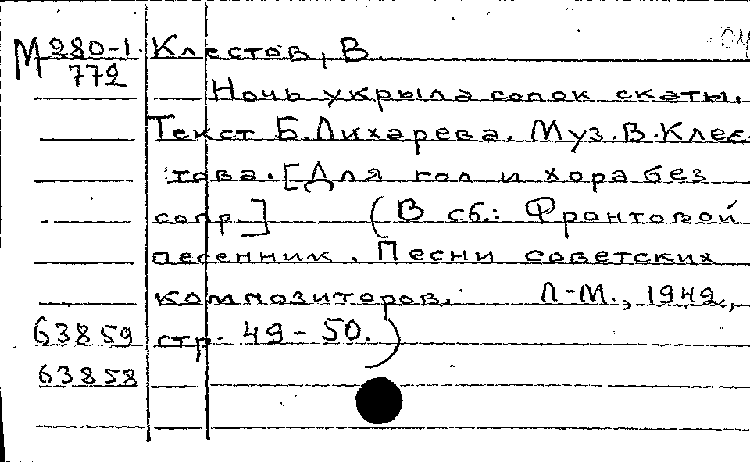 М 280-1 Клестов, В.
772
Ночь укрыла сопок скаты.
Текст Б. Лихарева. Муз. В. Клес-
това. [Для гол и хора без
сопр.] (В сб.: Фронтовой
песенник. Песни советских
композиторов. Л-М., 1942,
63859 стр. 49-50.)
63858